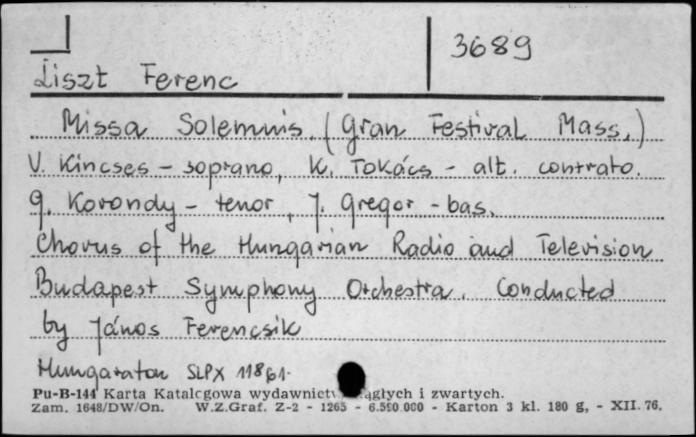 3689
Liszt Ferenc
Missa Solemnis. (Gran Festival Mass.)
V. Kincses - soprano, K. Tokács - alt. contrato.
G. Korondy - tenor, J. Gregor - bas.
Chorus of the Hungarian Radio and Television
Budapest Symphony Orchestra. Conducted
by János Ferencsik
Hungaraton SLPX 11861.
Pu-B-144 Karta Katalogowa wydawnictw ciągłych i zwartych.
Zam. 1648/DW/On. W.Z.Graf. Z-2 - 1265 - 6.590.000 - Karton 3 kl. 180 g, - XII. 76.